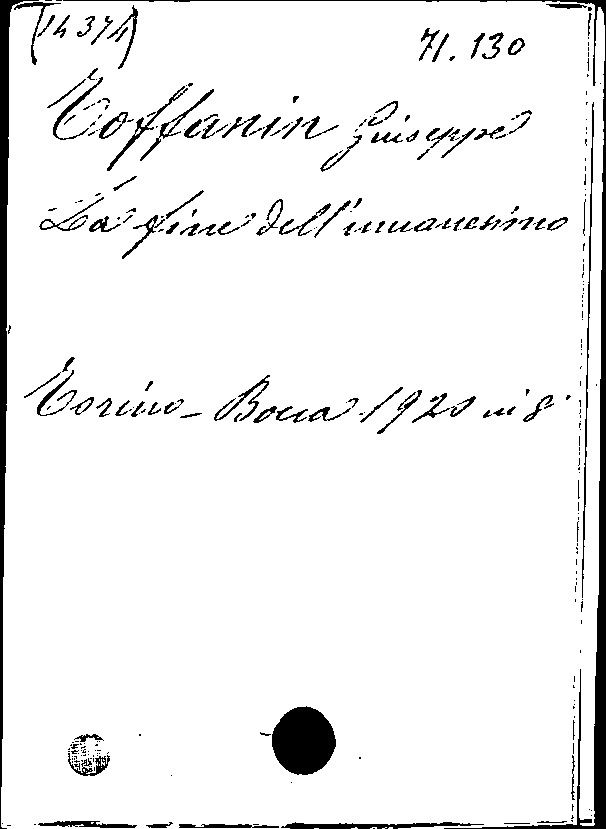 (14374)
71.130
Toffanin Giuseppe
La fine dell'umanesimo
Torino - Bocca 1920 in 8°